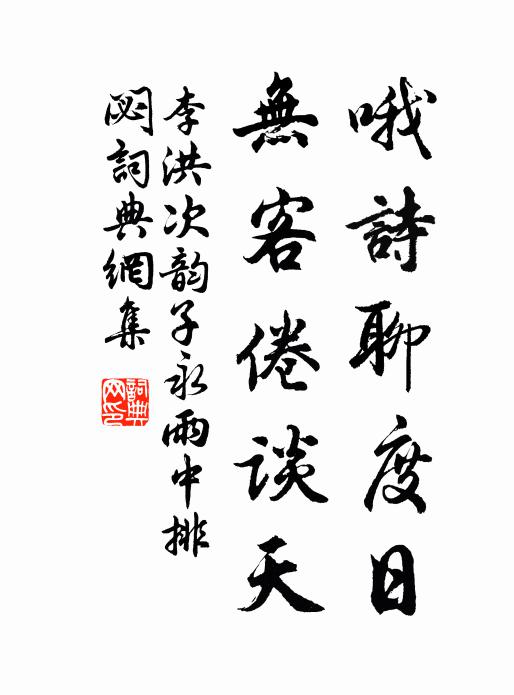 哦詩聊度日
無客倦談天
李洪次韵子永雨中排
悶詞典網集
詞典網印